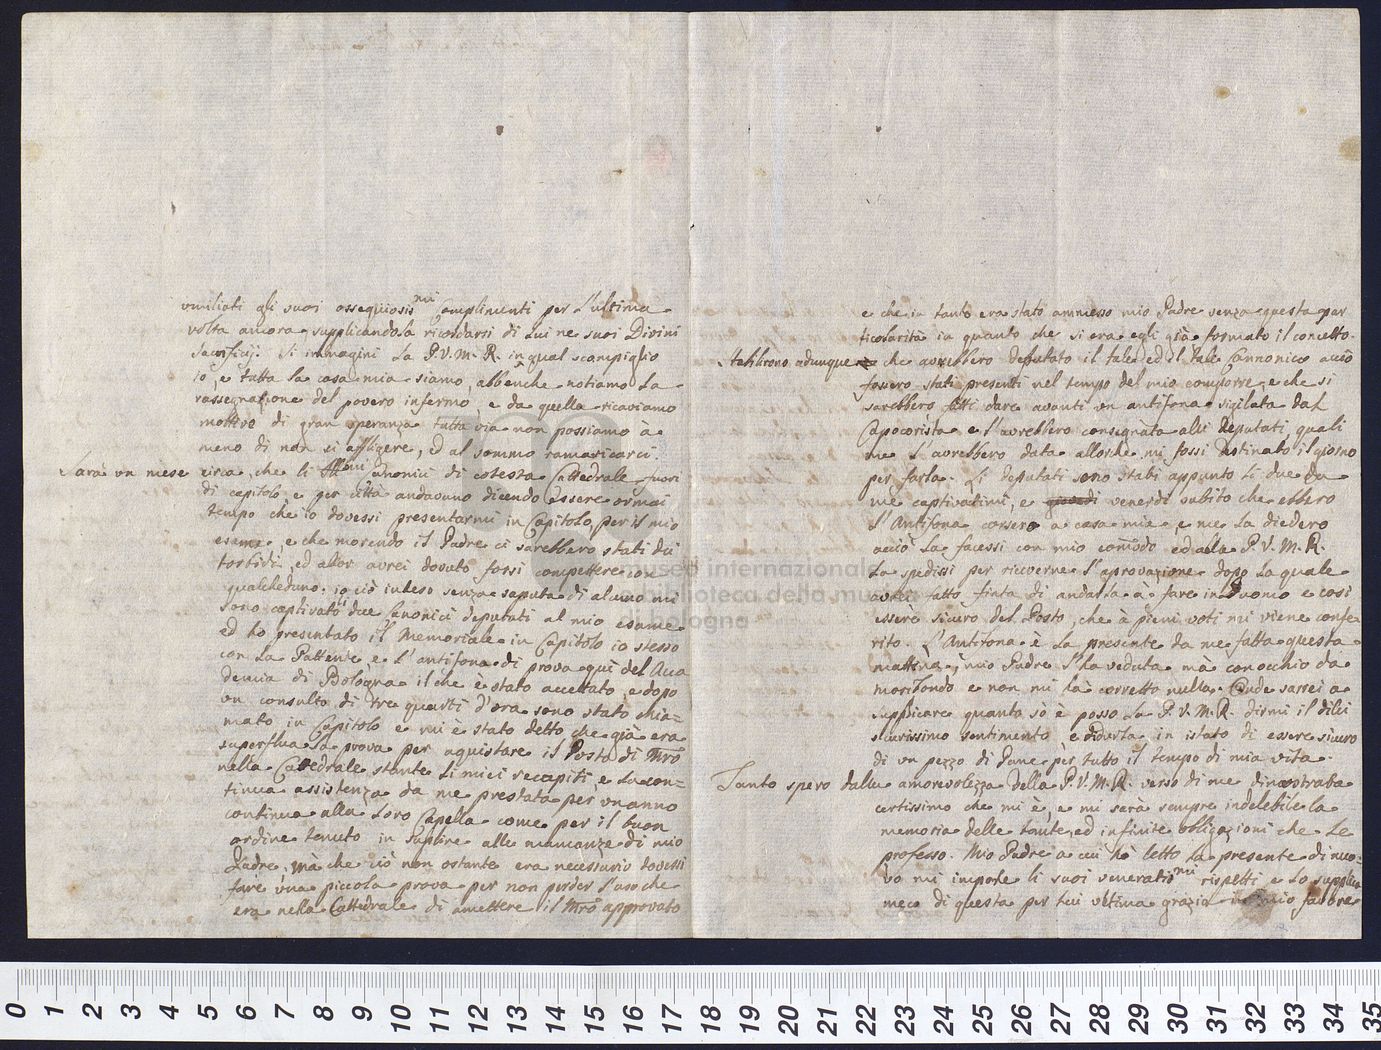 umiliati gli suoi ossequiosis.mi Complimenti per l'ultima
volta ancora supplicandola ricordarsi di Lui ne suoi Divini
Sacrificij. Si immagini La P.V.M.R. in qual scompiglio
io, e tutta la casa mia siamo, abbenche notiamo La
rassegnazione del povero infermo, e da quella ricaviamo
mottivo di gran speranza tutta via non possiamo à
meno di non ci affligere, ed al sommo ramaricarci
Sarà un mese circa, che li Canonici di cotesta Cattedrale fuori
di capitolo, e per città andavano dicendo essere ormai
tempo che io dovessi presentarmi in Capitolo, per il mio
esame, e che morendo il Padre ci sarebbero stati dei
torbidi, ed allor avrei dovuto forsi competere con
qualcheduno. io ciò inteso senza saputa di alcuno mi
sono captivato due Canonici deputati al mio esame
ed ho presentato il Memoriale in Capitolo io stesso
con La Pattente, e l'antifona di prova qui del Acca
demia di Bologna il che è stato accettato, e dopo
un consulto di tre quarti d'ora sono stato chia=
mato in Capitolo e mi è stato detto che già era
superflua la prova per aquistare il Posto di Mro
nella Cattedrale stante li miei recapiti, e La con=
tinua assistenza da me prestata per un anno
continuo alla Loro Capella come per il buon
ordine tenuto in suplire alle mancanze di mio
Padre, mà che ciò non ostante era necessario dovessi
fare una piccola prova per non perder l'uso che
era nella Cattedrale di amettere il Mro approvato
e che in tanto era stato ammesso mio Padre senza questa par
ticolarità in quanto che si era egli già formato il concetto.
Stabilirono adunque che avrebbero deputato il tale ed il tale Cannonico acciò
fossero stati presenti nel tempo del mio comporre, e che si
sarebbero fatti dare avanti un antifona sigilata dal
Capocorista e l'avrebbero consegnata alli Deputati, quali
me l'avrebbero data allorche mi fossi destinato il giorno
per farla. Li deputati sono stati appunto li due da
me captivatimi, e venerdi subito che ebbero
l'Antifona corsero a casa mia e me La diedero
acciò La facessi con mio comodo ed alla P.V.M.R.
La spedissi per riceverne l'aprovazione dopo La quale
avrei fatto finta di andarla à fare in Duomo e così
essere sicuro del Posto, che à pieni voti mi viene confe
rito. L'Antifona è La presente da me fatta questa
mattina, mio Padre l'ha veduta mà con occhio da
moribondo e non mi hà corretto nulla. Onde sarei a
supplicare quanto sò e posso La P.V.M.R. dirmi il di lei
sicurissimo sentimento e ridurla in istato di essere sicuro
di un pezzo di Pane per tutto il tempo di mia vita.
Tanto spero dalla amorevolezza della P.V.M.R. verso di me dimostrata
certissimo che mi è, e mi sarà sempre indelebile la
memoria delle tante, ed infinite obbligazioni che Le
professo. Mio Padre a cui hò letto La presente di nuo=
vo mi impone li suoi veneratis.mi rispetti e La supplica
meco di questa per lui ultima grazia mio favore
museo internazionale
e biblioteca della musica
di bologna
0 1 2 3 4 5 6 7 8 9 10 11 12 13 14 15 16 17 18 19 20 21 22 23 24 25 26 27 28 29 30 31 32 33 34 35